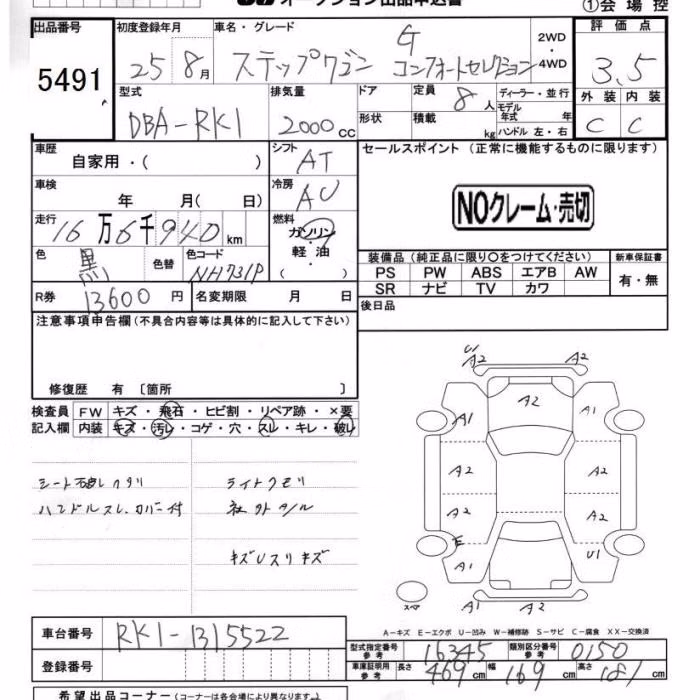 オークション出品申込書
①会場控
出品番号 初度登録年月 車名・グレード 評価点
5491 25 8月 ステップワゴン G コンフォートセレクション 2WD・4WD 3.5
型式 排気量 ドア 定員 8人 ディーラー・並行 外装 内装
DBA-RK1 2000cc 形状 積載 kg モデル年式 年 ハンドル 左・右 C C
車歴 自家用・( ) シフト AT セールスポイント (正常に機能するものに限ります)
車検 年 月( 日) 冷房 AC
NOクレーム・売切
走行 16万6千940km 燃料 ガソリン 軽油 ( )
色 黒 色替 色コード NH731P
装備品 (純正品に限り○をつけてください) 新車保証書
PS PW ABS エアB AW 有・無
SR ナビ TV カワ
R券 13600円 名変期限 月 日 後日品
注意事項申告欄 (不具合内容等は具体的に記入して下さい)
修復歴 有 [箇所 ]
検査員 FW キズ・飛石・ヒビ割・リペア跡・×要
記入欄 内装 キズ・汚レ・コゲ・穴・スレ・キレ・破レ
シート破レ ライトクモリ
ハンドルスレ カバー付 社外アルミ
キズUスリキズ
U1 A2 A2
A2
A1 A1
A2 A2
A2 A2
E
A1 U1
A1
スペア
A−キズ E−エクボ U−凹み W−補修跡 S−サビ C−腐食 XX−交換済
車台番号 RK1-1315522
型式指定番号 参考 16345 類別区分番号 参考 0150
登録番号 車庫証明用 参考 長さ 469cm 幅 169cm 高さ 181cm
希望出品コーナー (コーナーは各会場により異なります。)